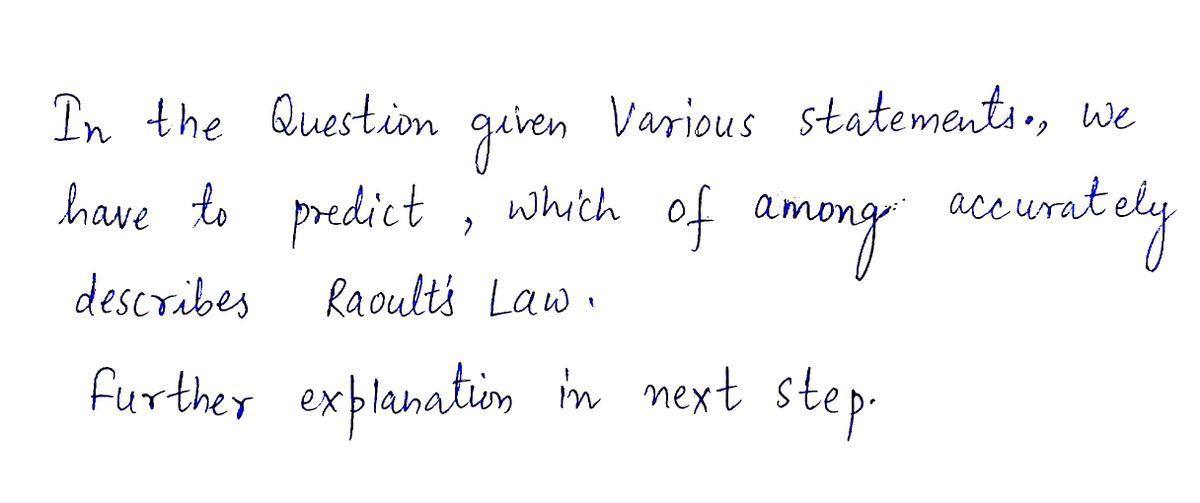 In the Question given Various statements., we
have to predict, which of among accurately
describes Raoult's Law.
Further explanation in next step.